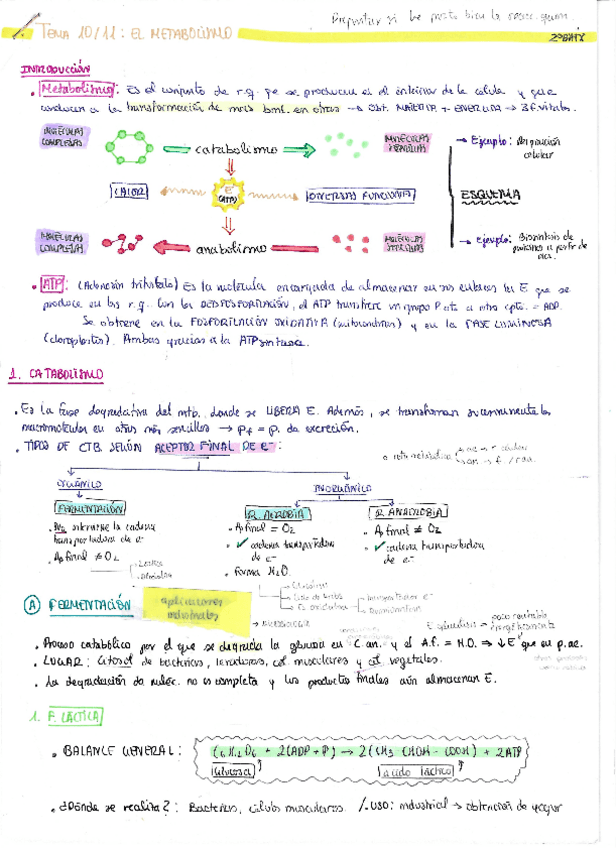 Preguntar si he puesto bien la
TEMA 10/11: EL METABOLISMO
2ºBHTX
INTRODUCCIÓN
• Metabolismo: Es el conjunto de r.q. que se producen en el interior de la célula y que
conducen a la transformación de unas bml. en otras → obt. MATERIA + ENERGÍA → 3 f. vitales.
MOLÉCULAS COMPLEJAS
catabolismo
MOLÉCULAS
→ Ejemplo: Respiración celular
CALOR
E (ATP)
DIVERSAS FUNCIONES
ESQUEMA
MOLÉCULAS COMPLEJAS
anabolismo
MOLÉCULAS
→ Ejemplo: Biosíntesis de proteínas a partir de
• ATP: (Adenosín trifosfato) Es la molécula encargada de almacenar en sus enlaces la E que se
produce en las r.q. Con la DESFOSFORILACIÓN, el ATP transfiere un grupo P ato a otro cpto. = ADP.
Se obtiene en la FOSFORILACIÓN OXIDATIVA (mitocondrias) y en la FASE LUMINOSA
(cloroplastos). Ambas gracias a la ATP sintasa.
1. CATABOLISMO
• Es la fase degradativa del mtb. donde se LIBERA E. Además, se transforman sucesivamente las
macromoléculas en otras más sencillas → pf = p. de excreción.
• TIPOS DE CTB SEGÚN ACEPTOR FINAL DE e⁻:
ORGÁNICO
INORGÁNICO
FERMENTACIÓN
R. AEROBIA
R. ANAEROBIA
• No interviene la cadena transportadora de e⁻
• A. final ≠ O₂
Láctica
Alcohólica
• A. final = O₂
• ✓ cadena transportadora de e⁻
• forma H₂O.
• A. final ≠ O₂
• ✓ cadena transportadora de e⁻
Glucólisis
Ciclo de Krebs
F. oxidativa
Transporte e⁻
Quimiósmosis
A FERMENTACIÓN
aplicaciones industriales
E glucólisis = poco rentable energéticamente
• Proceso catabólico por el que se degrada la glucosa en C. an. y el A.f. = M.O. ⇒ ↓E que en p. ae.
• LUGAR: Citosol de bacterias, levaduras, cél. musculares y cél. vegetales.
• La degradación de moléc. no es completa y los productos finales aún almacenan E.
1. F. LÁCTICA
• BALANCE GENERAL: C₆H₁₂O₆ + 2(ADP + P) → 2(CH₃ CHOH - COOH) + 2ATP
Glucosa
Ácido láctico
• ¿Dónde se realiza?: Bacterias, células musculares. /. USO: industrial → obtención de yogur